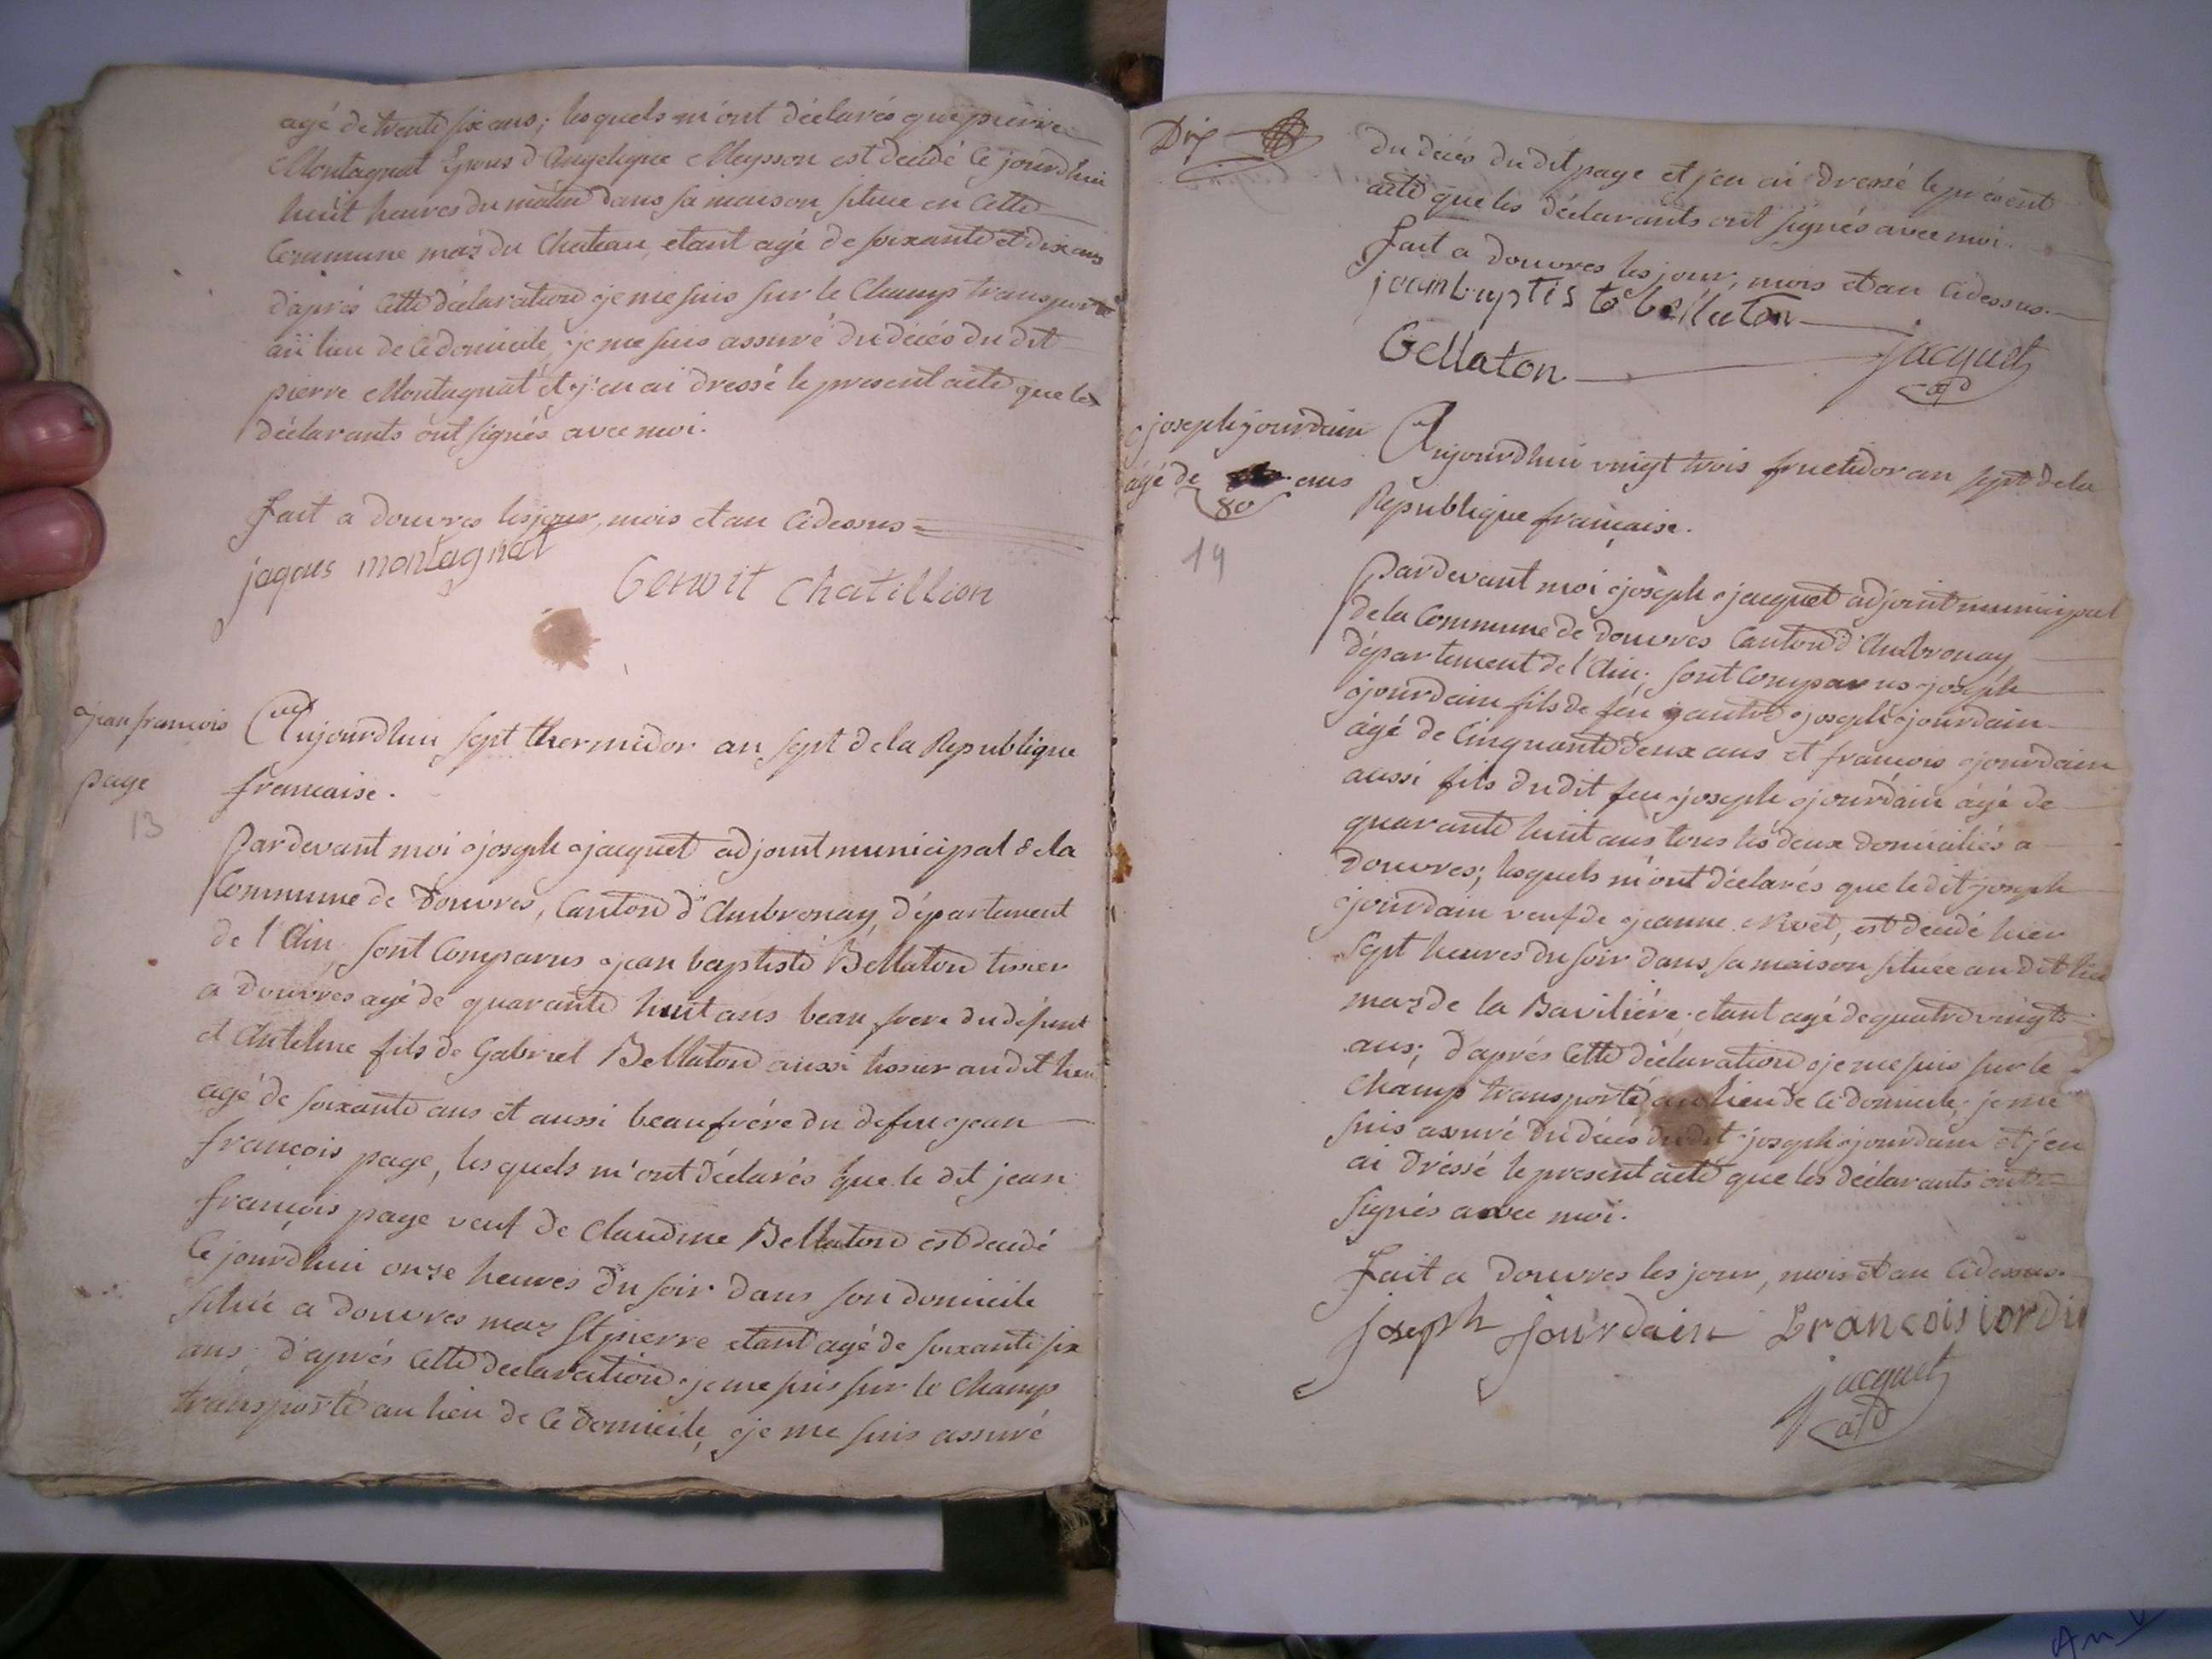 agé de trente six ans; lesquels m'ont déclarés que pierre
Montagnat Epous d'Angelique Meysson est decidé ce jourdhui
huit heures du matin dans sa maison situee en cette
Commune mas du Chateau, etant agé de soixante et dix ans
d'aprés cette déclaration je me suis sur le Champ transporté
au lieu de ce domicile, je me suis assuré du décés du dit
pierre Montagnat et j'en ai dressé le present acte que les
déclarants ont signés avec moi.
fait a douvres les jour, mois et an cidessus
jaques montagnat
Benoit Chatillion
jean francois
page
13
Aujourdhui sept thermidor an sept de la Republique
francaise.
Pardevant moi joseph jacquet adjoint municipal de la
Commune de Douvres, Canton d'Ambronay, département
de l'Ain, sont Comparus jean baptiste Bellaton tissier
a Douvres agé de quarante huit ans beau frere du défunt
et Antelme fils de Gabriel Bellaton aussi tissier audit lieu
agé de soixante ans et aussi beaufrére du defun jean
françois page, lesquels m'ont déclarés que le dit jean
françois page veuf de Claudine Bellaton est decidé
ce jourdhui onze heures du soir dans son domicile
situé a douvres mas St pierre etant agé de soixante six
ans; d'aprés cette declaration je me suis sur le Champ
transporté au lieu de ce domicile, je me suis assuré
Dix
du décés du dit page et j'en ai dressé le présent
acte que les déclarants ont signés avec moi.
fait a douvres les jour, mois et an cidessus.
jeanbaptiste bellaton
Bellaton
jacquet
adj
joseph jourdain
agé de ans
80
19
Aujourdhui vingt trois fructidor an sept de la
Republique française.
Pardevant moi joseph jacquet adjoint municipal
de la Commune de Douvres Canton d'Ambronay
département de l'Ain; sont Comparus joseph
jourdain fils de feu autre joseph jourdain
agé de Cinquante deux ans et francois jourdain
aussi fils du dit feu joseph jourdain agé de
quarante huit ans tous les deux domiciliés a
Douvres; lesquels m'ont déclarés que le dit joseph
jourdain veuf de jeanne Nivet, est decidé hier
sept heures du soir dans sa maison située au dit lieu
mas de la Baviliére, etant agé de quatre vingts
ans; d'aprés cette déclaration je me suis sur le
Champ transporté au lieu de ce domicile, je me
suis assuré du décés du dit joseph jourdain et j'en
ai dréssé le present acte que les déclarants ont
signés avec moi.
fait a Douvres les jour, mois et an cidessus.
joseph jourdain francois jordin
jacquet
adj